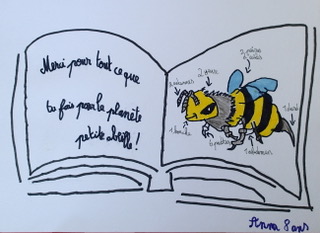 Merci pour tout ce que
tu fais pour la planète
petite abeille !
2 antennes
2 yeux
2 paires
d'ailes
1 dard
1 bouche
6 pattes
1 abdomen
Anna 8 ans